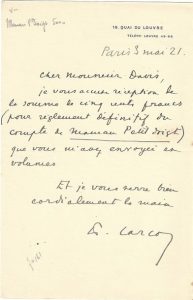 18, QUAI DU LOUVRE
TÉLÉPH. LOUVRE
Paris 3 mai 21.
Cher Monsieur Davis,
je vous accuse réception de
la somme de cinq cents francs
(pour règlement définitif du
compte de Maman Petitdoigt)
que vous m'avez envoyée en
volumes
Et je vous serre bien
cordialement la main
F. Carco